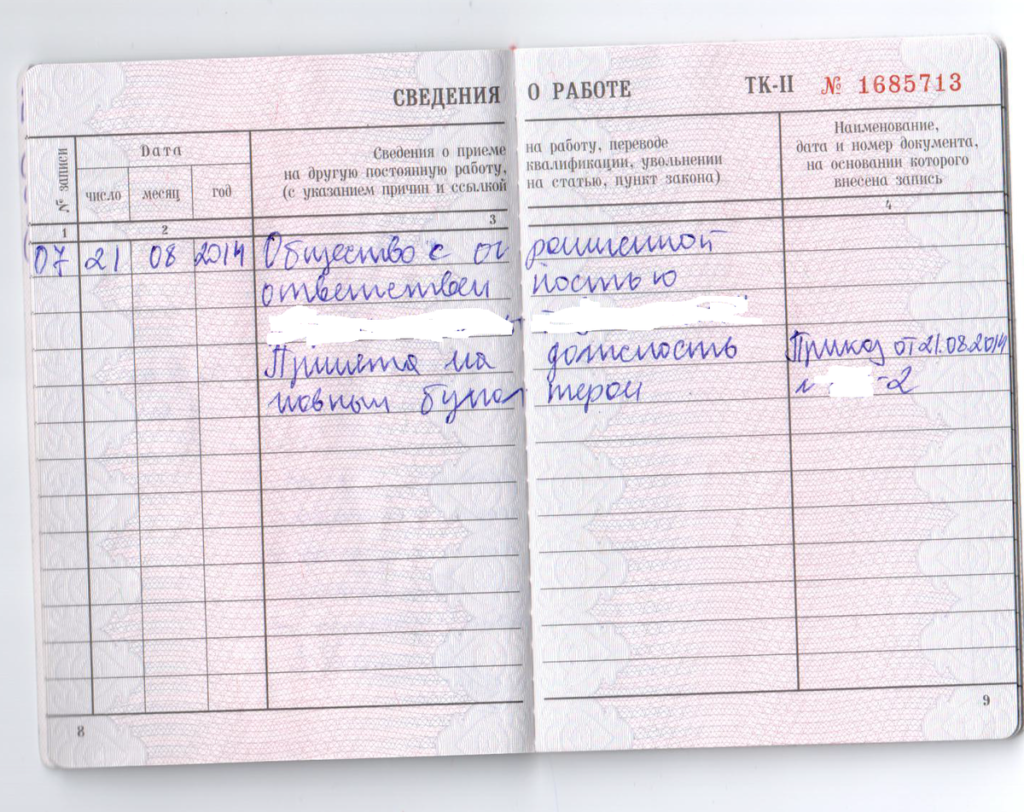 СВЕДЕНИЯ О РАБОТЕ ТК-II № 1685713
№ записи
Дата
число месяц год
Сведения о приеме на работу, переводе
на другую постоянную работу, квалификации, увольнении
(с указанием причин и ссылкой на статью, пункт закона)
Наименование,
дата и номер документа,
на основании которого
внесена запись
1 2 3 4
07 21 08 2014 Общество с ог раниченной
ответствен ностью
Принята на должность Приказ от 21.08.2014
-2
8 9